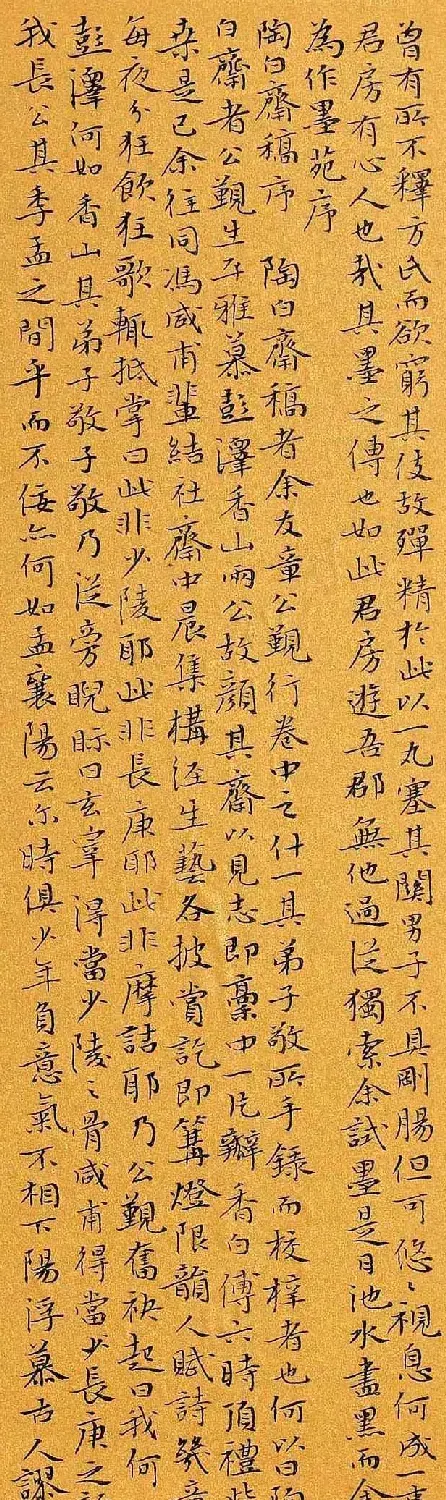 曾有所不釋方氏而欲窮其伎故殫精於此以一丸塞其關男子不具剛腸但可悠々視息何成一事
君房有心人也哉其墨之傳也如此君房遊吾郡無他過從獨索余試墨是日池水盡黑而余
為作墨苑序
陶白齋稿序 陶白齋稿者余友章公覲行卷中之什一其弟子敬所手錄而校梓者也何以曰陶
白齋者公覲生平雅慕彭澤香山兩公故顏其齋以見志即稾中一瓣香白傅六時頂禮
桑是已余往同馮咸甫輩結社齋中晨集構經生藝各披賞訖即篝燈限韻人賦詩幾章
每夜分狂飲狂歌輒抵掌曰此非少陵耶此非長庚耶此非摩詰耶乃公覲奮袂起曰我何
彭澤何如香山其弟子敬子敬乃從旁睨眎曰玄宰得當少陵之骨咸甫得當少長庚之
我長公其季孟之間乎而不佞亦何如孟襄陽云尔時俱少年負意氣不相下陽浮慕古人謬